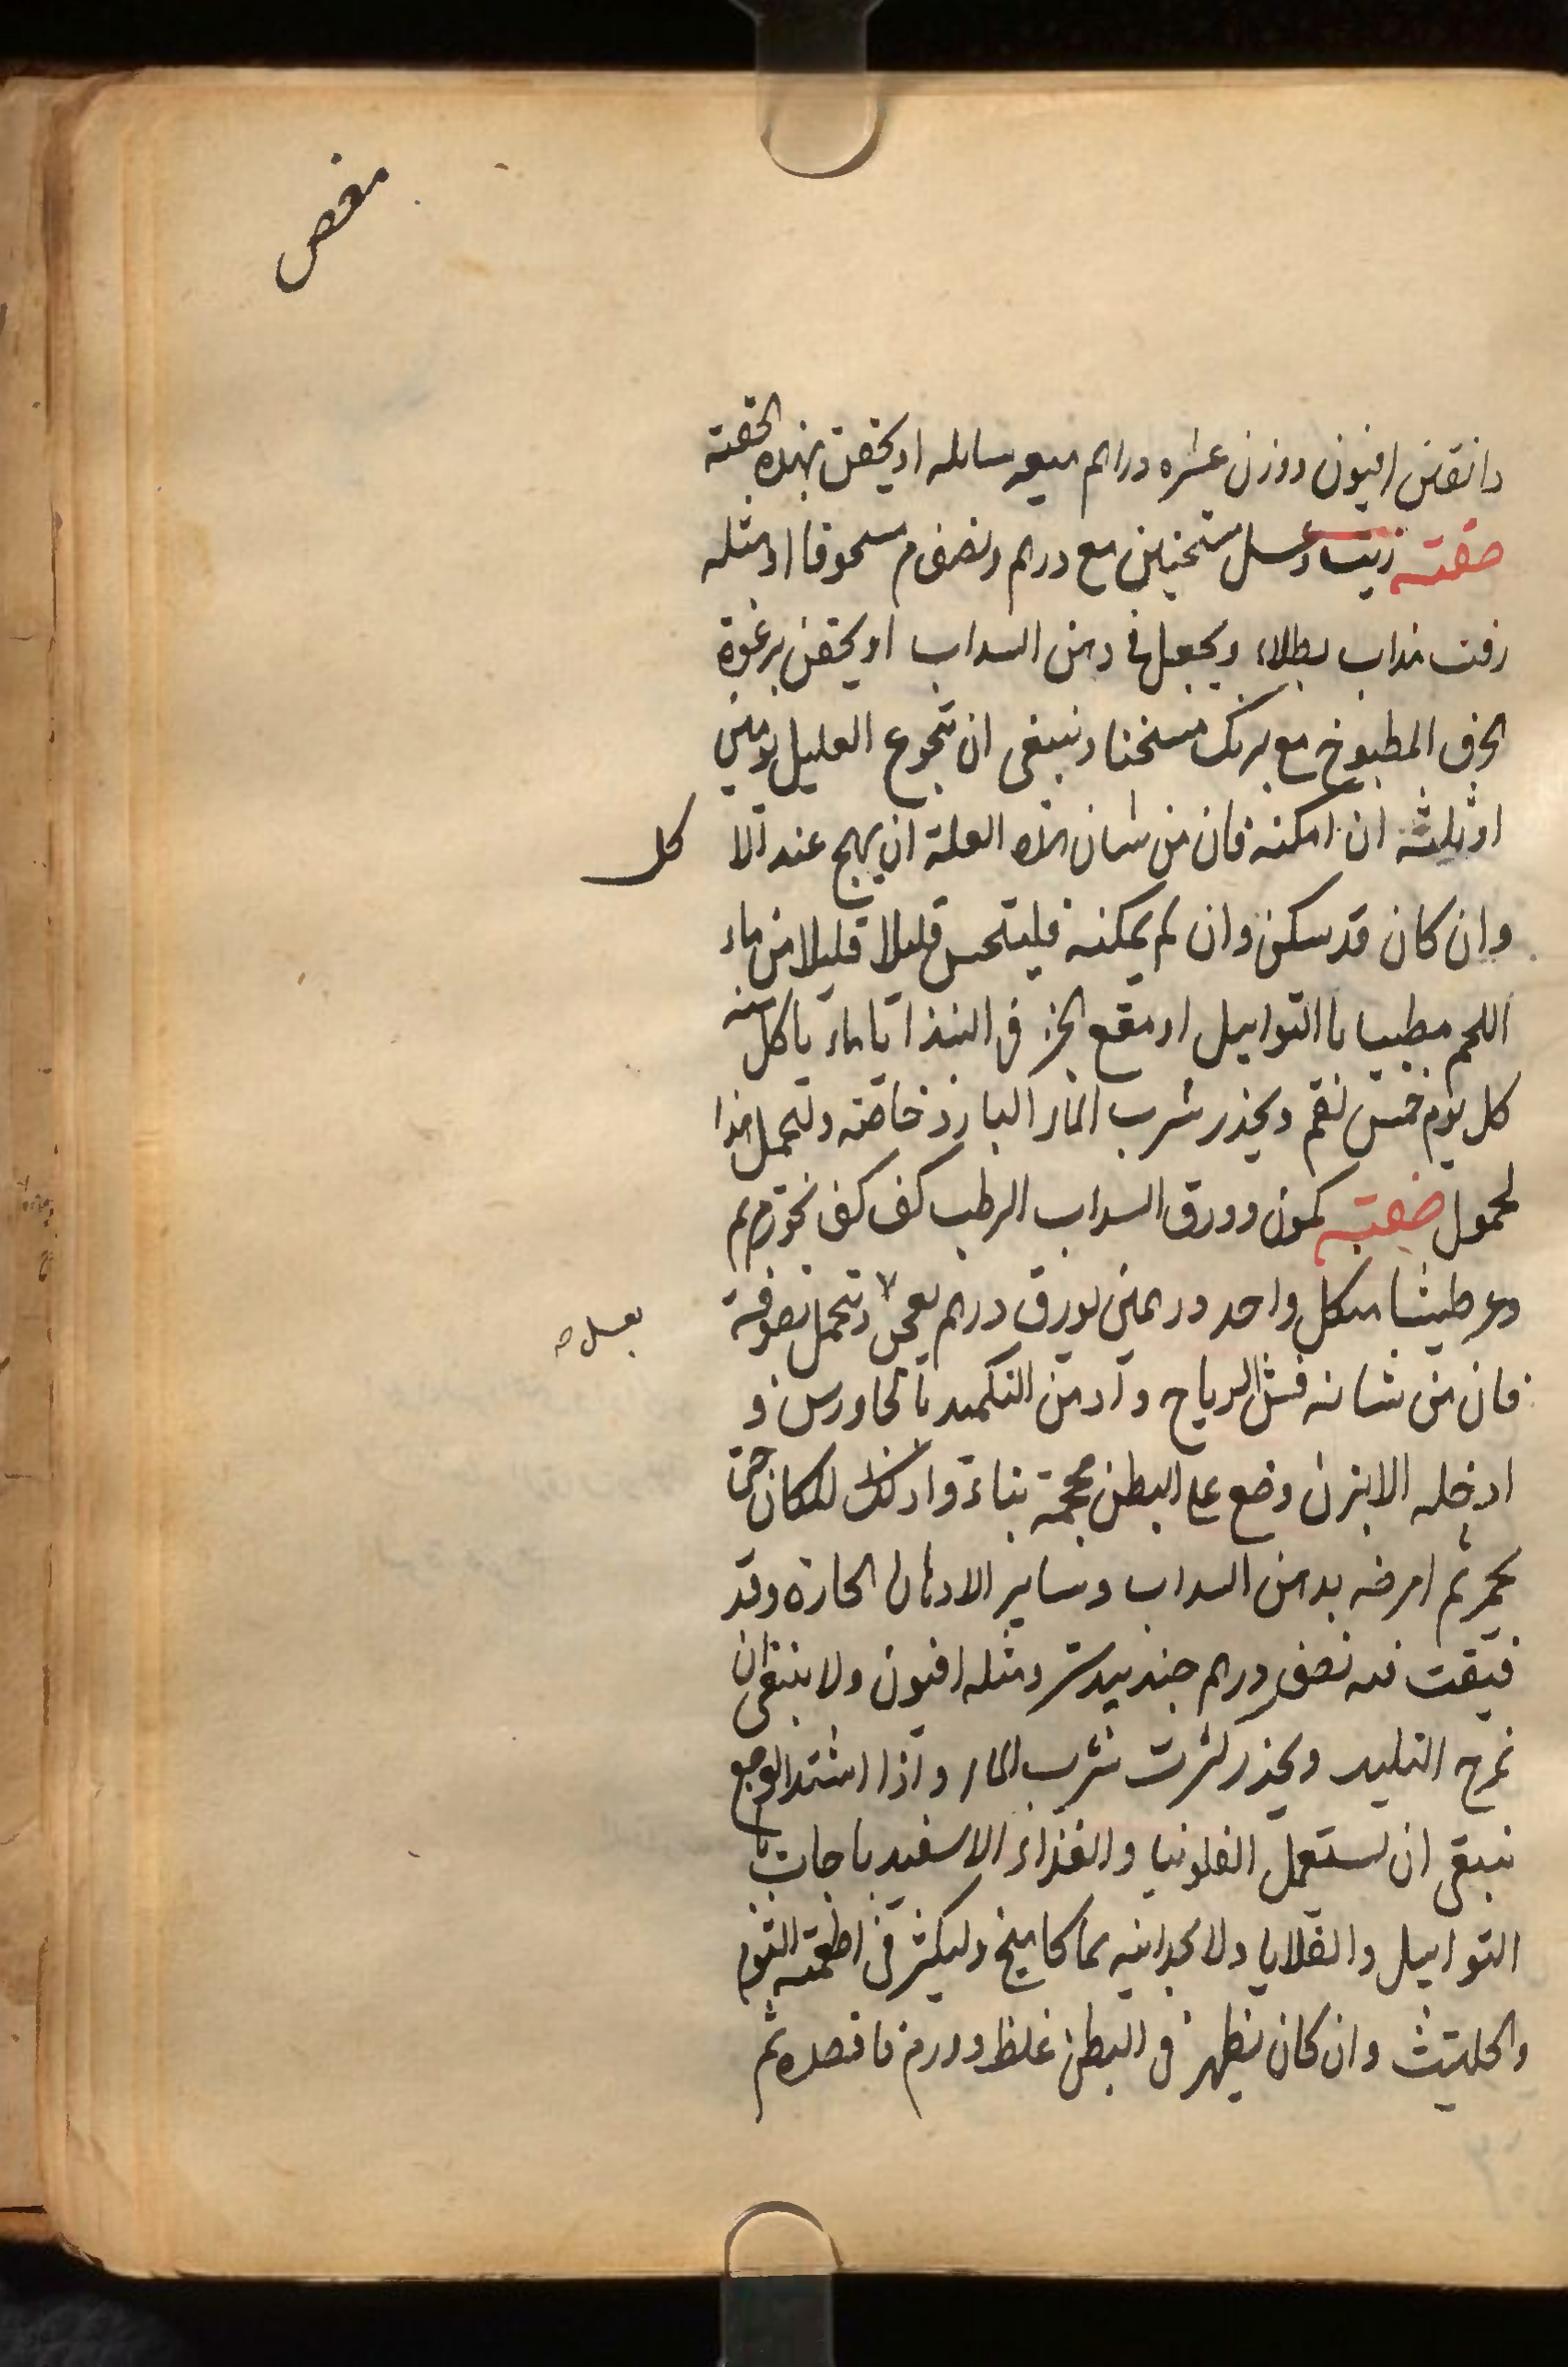 مغص
دانقين افيون ووزن عشره دراهم ميعه سائله او يحقن بهذه الحقنه
صفته زيت وعسل مسخنين مع درهم ونصف مسحوقا او مثله
زفت مذاب بطلاء ويجعل فى دهن السداب او يحقن برغوة
الخرف المطبوخ مع برنك مسخنا وينبغى ان يتجوع العليل يومين
او ثلثة ان امكنه فان من شان هذه العلة ان يهيج عند الا كل
وان كان قد سكن وان لم يمكنه فليتحس قليلا قليلا من ماء
اللحم مطيبا باالتوابيل او مقع الخبز فى النبذا ياكل منه
كل يوم خمس لقم ويحذر شرب الماء البارد خاصة وليحمل هذا
لحمول صفته كمون وورق السداب الرطب كف كف نحو
وعرطنيثا مكل واحد درهمين بورق درهم يعجن وتحمل بصوفة
بعسل صح
فان من شانه فش الرياح وادمن التكميد بالجاورس و
ادخله الابزن وضع على البطن محجمة بناءة وادلك المكان حتى
يحمر ثم امرخه بدهن السداب وسائر الادهان الحارة وقد
فتقت فيه نصف درهم جندبيدستر ومثله افيون ولا ينبغى ان
تمرخ التليد ويحذر كثرت شرب الماء واذا اشتد الوجع
نبيغى ان يستعمل الفلونيا والغذاء الاسفيدباجات با
التوابيل والقلايا ولا بحدانيه بماكامنخ وليكثر فى اطعمته الثوم
والحلتيث وان كان يظهر فى البطن غلظ وورم فافصده ثم